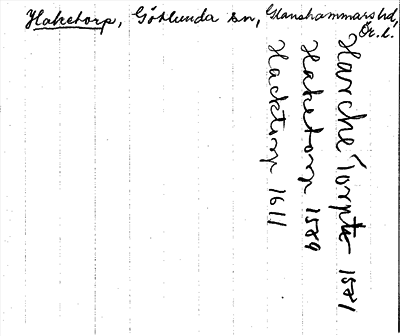 Haketorp, Götlunda sn, Glanshammars hd,
Ör. l.
Harche Torpte 1581
Haketorp 1589
Hacktorp 1611